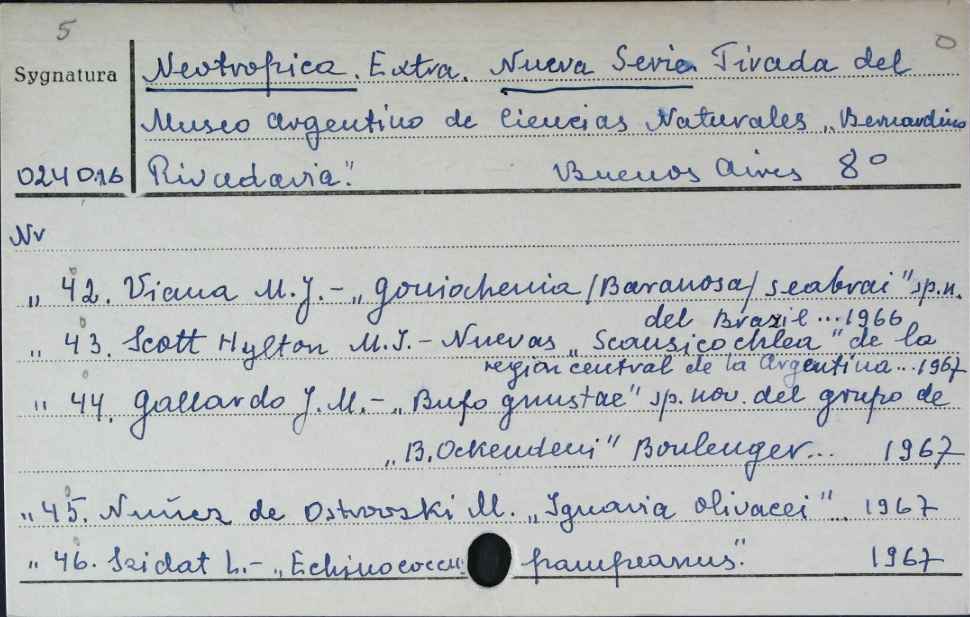 5
Sygnatura Neotropica. Extra. Nueva Serie Tirada del
Museo Argentino de Ciencias Naturales „Bernardino
024016 Rivadavia". Buenos Aires 8°
Nr
„ 42. Viana M.J. - „Goniochenia /Baranosa/ seabrai" sp.n.
del Brazil ... 1966
„ 43. Scott Hylton M.I. - Nuevas „Scansicochlea" de la
region central de la Argentina ... 1967
„ 44. Gallardo J.M. - „Bufo gnustae" sp. nov. del grupo de
„B. Ockendeni" Boulenger ... 1967
„ 45. Nuñez de Ostrovski M. „Ignavia olivacei" .. 1967
„ 46. Szidat L. - „Echinococcu pampeanus". 1967